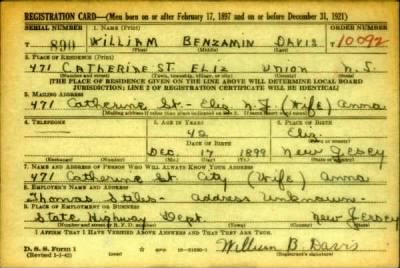 REGISTRATION CARD—(Men born on or after February 17, 1897 and on or before December 31, 1921)
SERIAL NUMBER 1. NAME (Print) ORDER NUMBER
T 890 WILLIAM BENZAMIN DAVIS T 10092
(First) (Middle) (Last)
2. PLACE OF RESIDENCE (Print)
471 CATHERINE ST ELIZ UNION N.J.
(Number and street) (Town, township, village, or city) (County) (State)
[THE PLACE OF RESIDENCE GIVEN ON THE LINE ABOVE WILL DETERMINE LOCAL BOARD
JURISDICTION; LINE 2 OF REGISTRATION CERTIFICATE WILL BE IDENTICAL]
3. MAILING ADDRESS
471 Catherine St - Eliz N.J. (Wife) Anna
4. TELEPHONE 5. AGE IN YEARS 6. PLACE OF BIRTH
42 Eliz.
DATE OF BIRTH
Dec. 17 1899 New Jersey
(Exchange) (Number) (Mo.) (Day) (Yr.) (State or country)
7. NAME AND ADDRESS OF PERSON WHO WILL ALWAYS KNOW YOUR ADDRESS
471 Catherine St City (Wife) Anna
8. EMPLOYER'S NAME AND ADDRESS
Thomas - Address Unknown -
9. PLACE OF EMPLOYMENT OR BUSINESS
State Highway Dept. New Jersey
(Number and street or R. F. D. number) (Town) (County) (State)
I AFFIRM THAT I HAVE VERIFIED ABOVE ANSWERS AND THAT THEY ARE TRUE.
D. S. S. Form 1
(Revised 1-1-42) William B. Davis